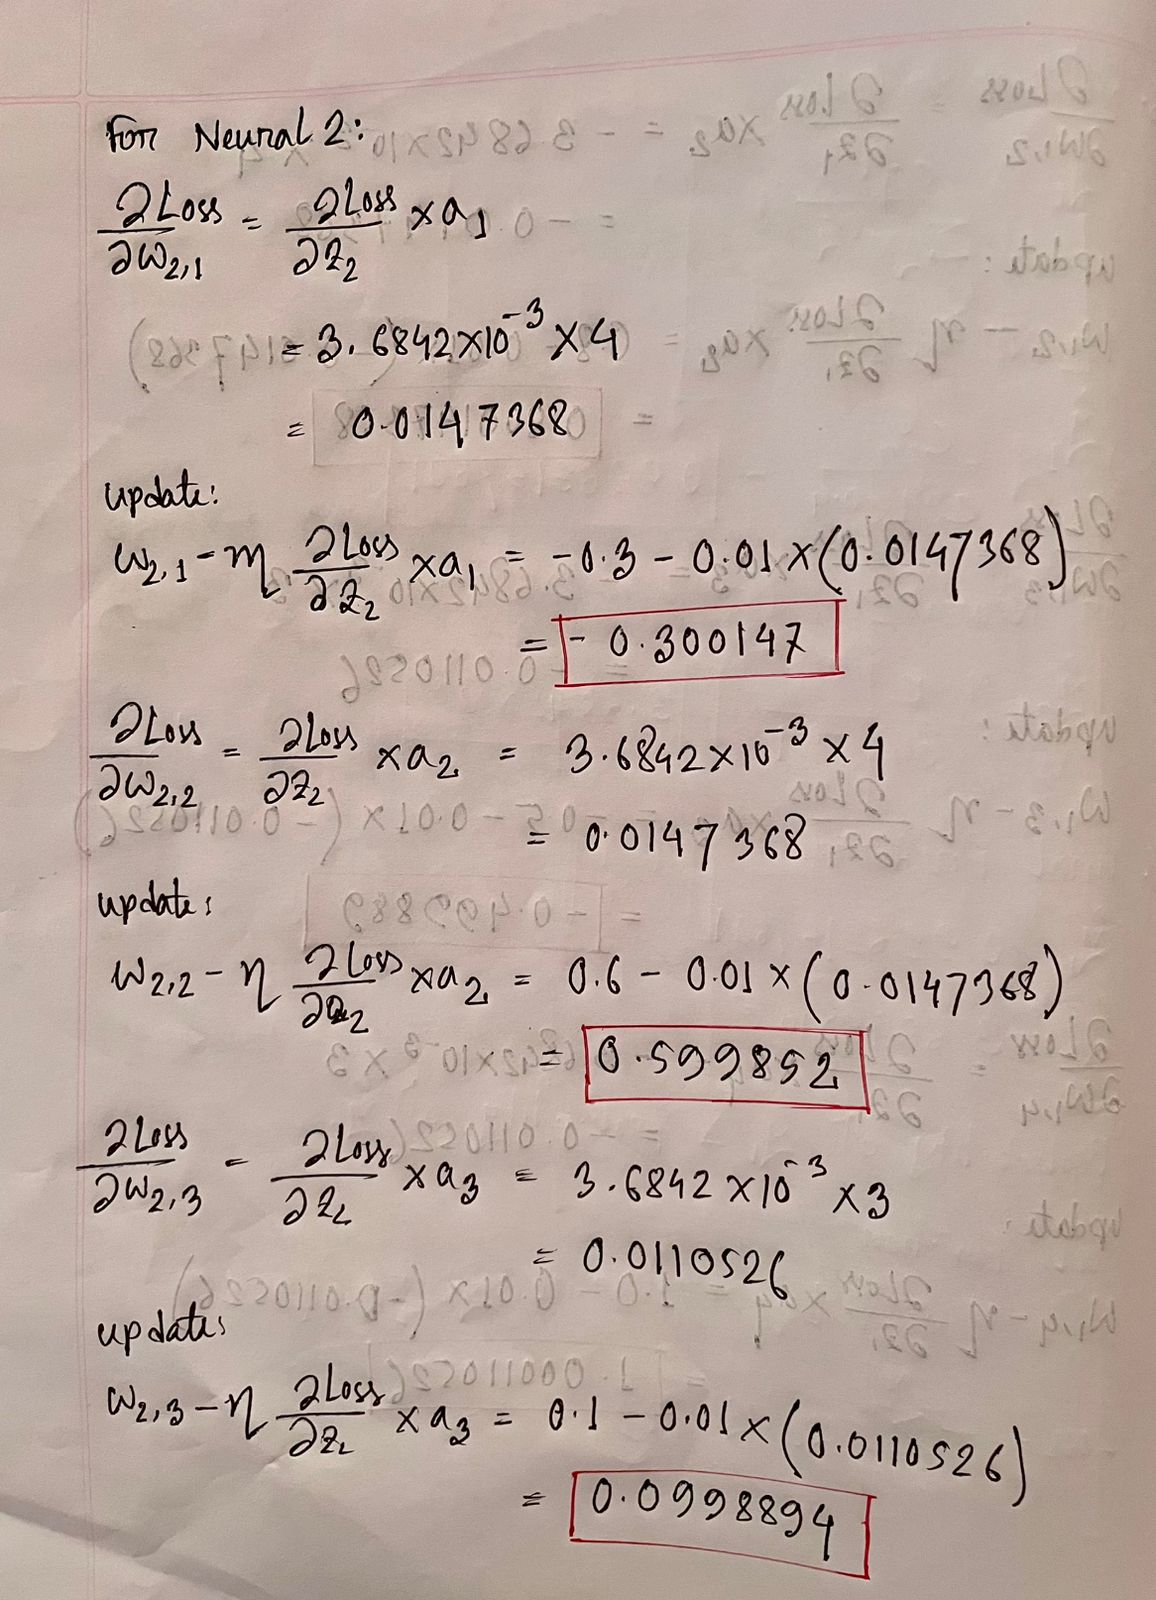 For Neural 2:
∂Loss/∂w₂,₁ = ∂Loss/∂z₂ × a₁
= 3.6842×10⁻³ × 4
= 0.0147368
update:
w₂,₁ - η ∂Loss/∂z₂ × a₁ = -0.3 - 0.01 × (0.0147368)
= - 0.300147
∂Loss/∂w₂,₂ = ∂Loss/∂z₂ × a₂ = 3.6842×10⁻³ × 4
= 0.0147368
update:
w₂,₂ - η ∂Loss/∂z₂ × a₂ = 0.6 - 0.01 × (0.0147368)
= 0.599852
∂Loss/∂w₂,₃ = ∂Loss/∂z₂ × a₃ = 3.6842 × 10⁻³ × 3
= 0.0110526
update:
w₂,₃ - η ∂Loss/∂z₂ × a₃ = 0.1 - 0.01 × (0.0110526)
= 0.0998894